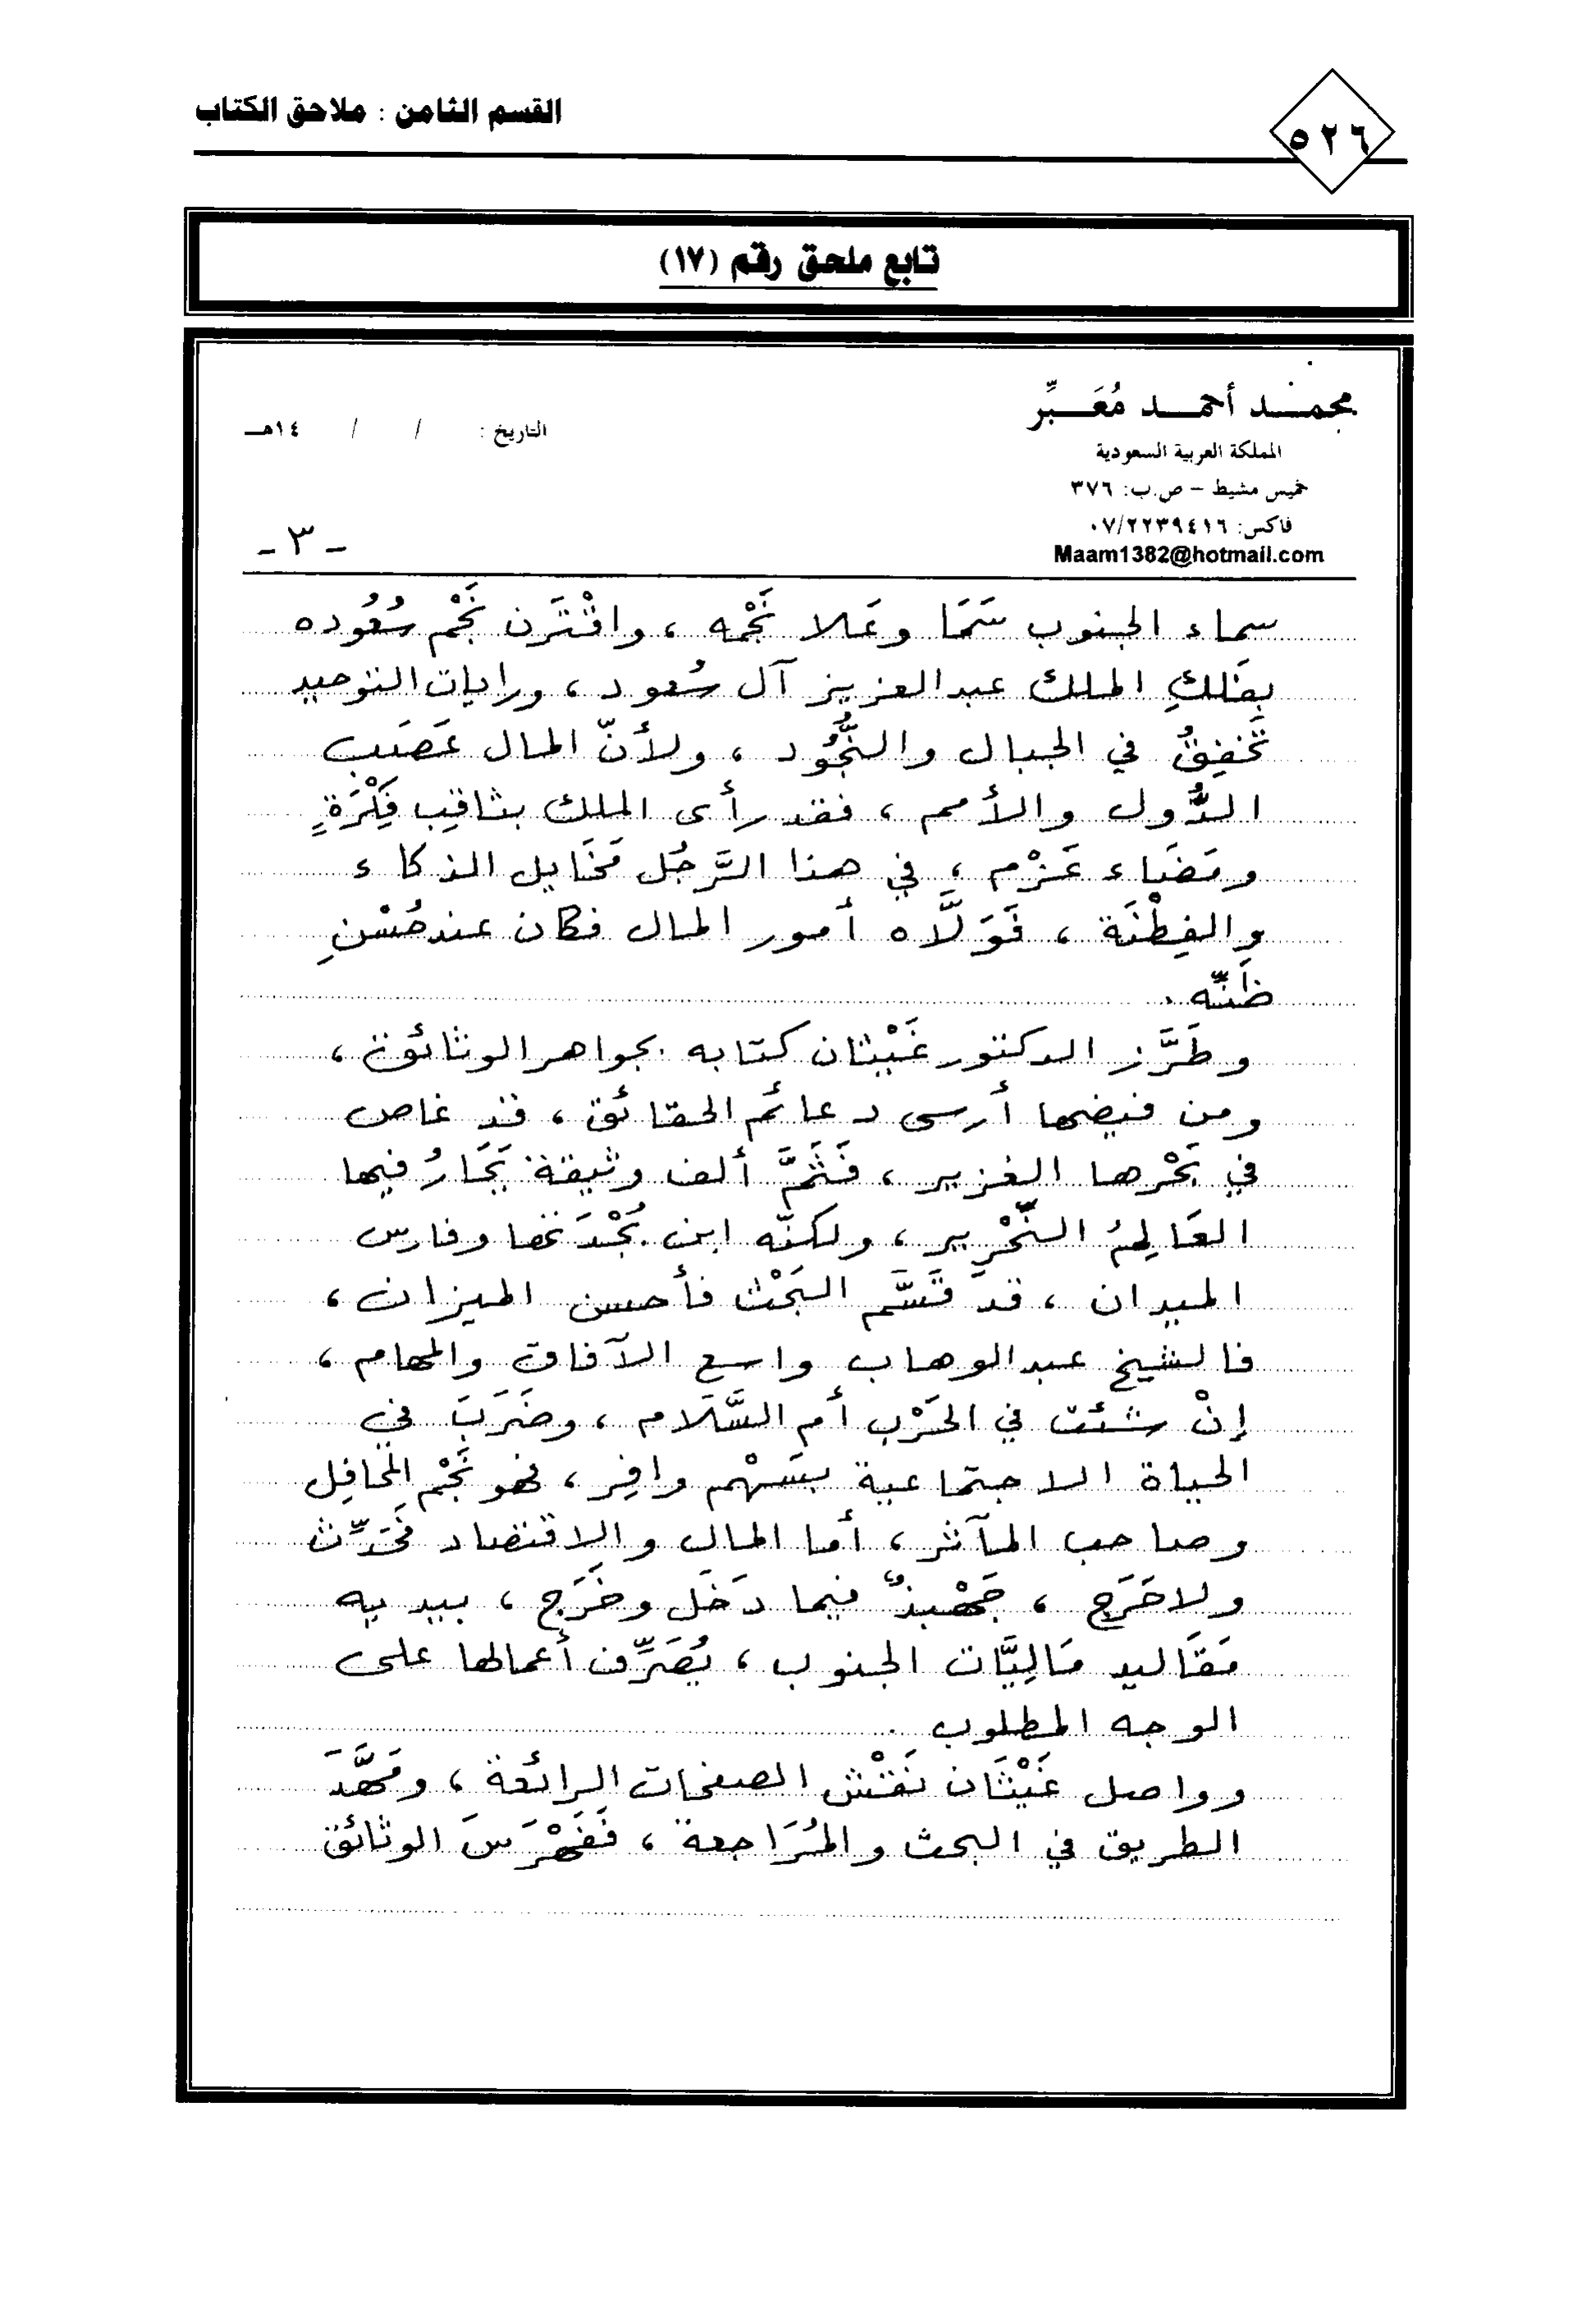 القسم الثامن : ملاحق الكتاب
٥٢٦
تابع ملحق رقم (١٧)
محمد أحمد مُعَبِّر
المملكة العربية السعودية
خميس مشيط - ص.ب: ٣٧٦
فاكس: ٠٧/٢٢٣٩٤١٦
Maam1382@hotmail.com
التاريخ : / / ١٤هـ
- ٣ -
سماء الجنوب سَمَا وعَلا نَجْمه ، واقْتَرن نَجْم سُعُوده
بفَلكِ الملك عبدالعزيز آل سُعود ، ورايات التوحيد
تَخْفِقُ في الجبال والنُّجُود ، ولأنّ المال عَصَب
الدُّول والأمم ، فقد رأى الملك بثاقِب فِكْرَةٍ
ومَضَاء عَزْم ، في هذا الرَّجُل مَخَايل الذكاء
والفِطْنَة ، فَوَلَّاه أمور المال فكان عند حُسْنِ
ظَنِّه .
وطَرَّز الدكتور غَيْثان كتابه بجواهر الوثائق ،
ومن فيضها أرسى دعائم الحقائق ، فقد غاص
في بَحْرها الغزير ، فَثَمَّ ألف وثيقة يَحَارُ فيها
العَالِمُ النِّحْرِير ، ولكنّه ابن بُجْدَتها وفارس
الميدان ، قد قَسَّم البَحْث فأحسن الميزان ،
فالشيخ عبدالوهاب واسع الآفاق والمهام ،
إنْ شئت في الحَرْب أم السَّلام ، وضَرَبَ في
الحياة الاجتماعية بسَهْم وافِر ، فهو نَجْم المَحَافِل
وصاحب المآثر ، أما المال والاقتصاد فَحَدِّث
ولا حَرَج ، جَهْبذٌ فيما دَخَل وخَرَج ، بيديه
مَقَاليد مَالِيَّات الجنوب ، يُصَرِّف أعمالها على
الوجه المطلوب .
وواصل غَيْثَان نَقْش الصفحات الرائعة ، ومَهَّدَ
الطريق في البحث والمُرَاجعة ، فَفَهْرَسَ الوثائق